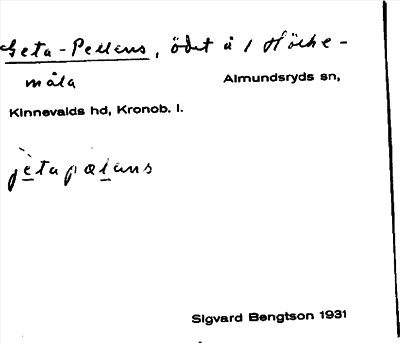 Geta-Pellens, ödet å 1 Höke-
måla Almundsryds sn,
Kinnevalds hd, Kronob. l.
jetapælans
Sigvard Bengtson 1931